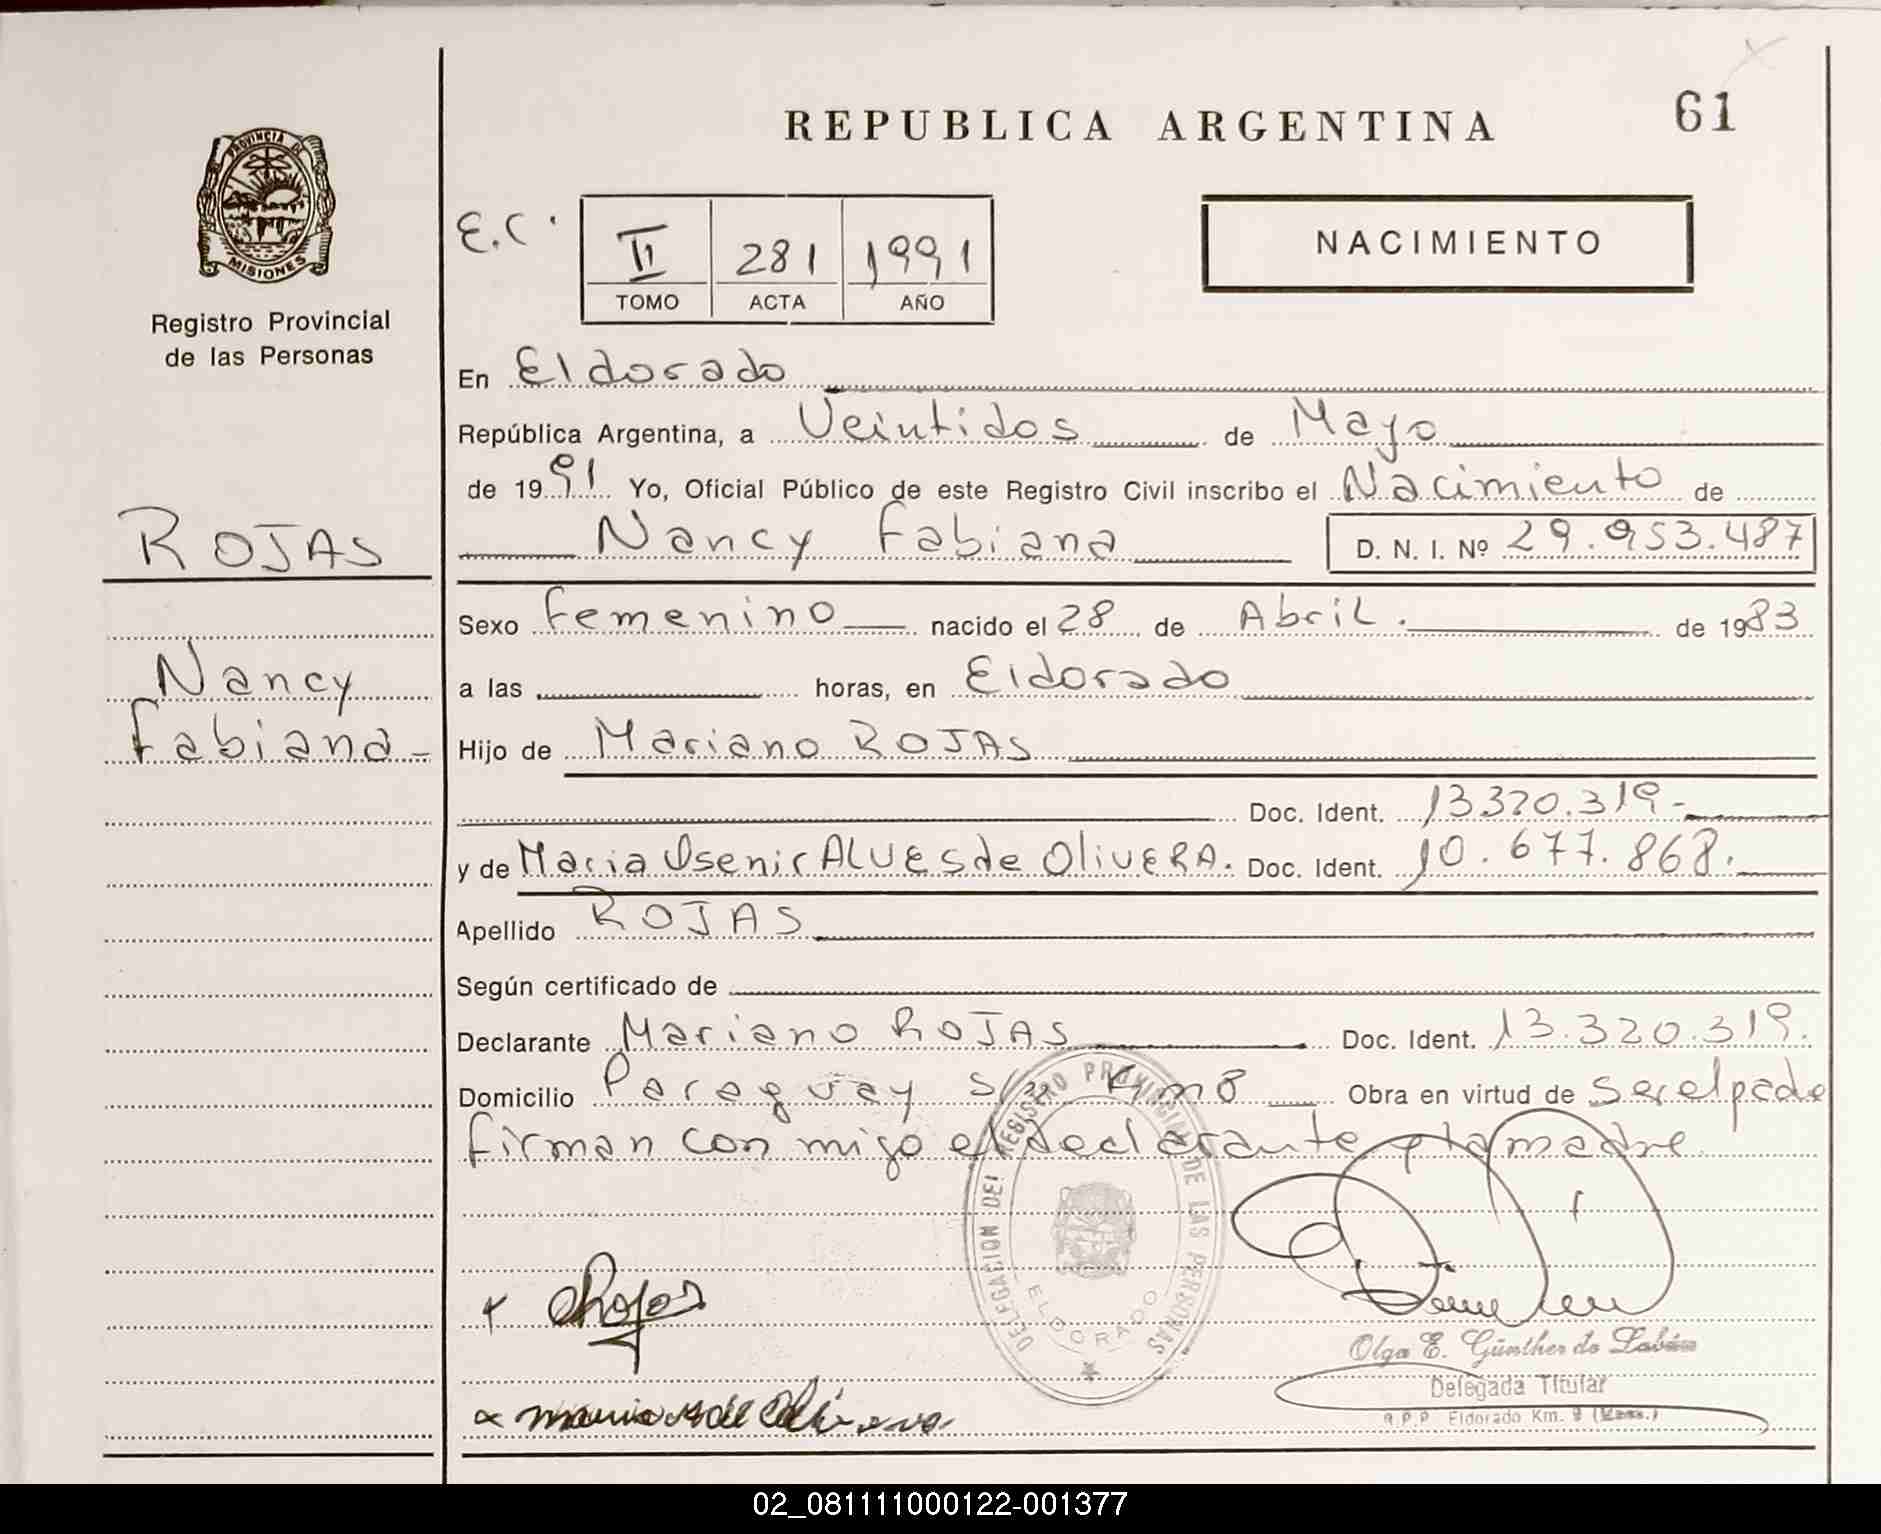 REPUBLICA ARGENTINA
61
PROVINCIA DE
MISIONES
Registro Provincial
de las Personas
E.C.
II 281 1991
TOMO ACTA AÑO
NACIMIENTO
En Eldorado
República Argentina, a Veintidos de Mayo
de 1991 Yo, Oficial Público de este Registro Civil inscribo el Nacimiento de
ROJAS
Nancy Fabiana D. N. I. Nº 29.953.487
Sexo Femenino nacido el 28 de Abril. de 1983
Nancy
Fabiana-
a las horas, en Eldorado
Hijo de Mariano ROJAS
Doc. Ident. 13320.319-
y de Maria Isenir ALVES de OliVERA. Doc. Ident. 10.677.868.
Apellido ROJAS
Según certificado de
Declarante Mariano ROJAS Doc. Ident. 13.320.319.
Domicilio Paraguay s/n Km8 Obra en virtud de ser el padre
firman con migo el declarante y la madre
DELEGACION DEL REGISTRO PROVINCIAL DE LAS PERSONAS
ELDORADO
Rojas
Olga E. Günther de Labán
Delegada Titular
R.P.P. Eldorado Km. 9
02_081111000122-001377